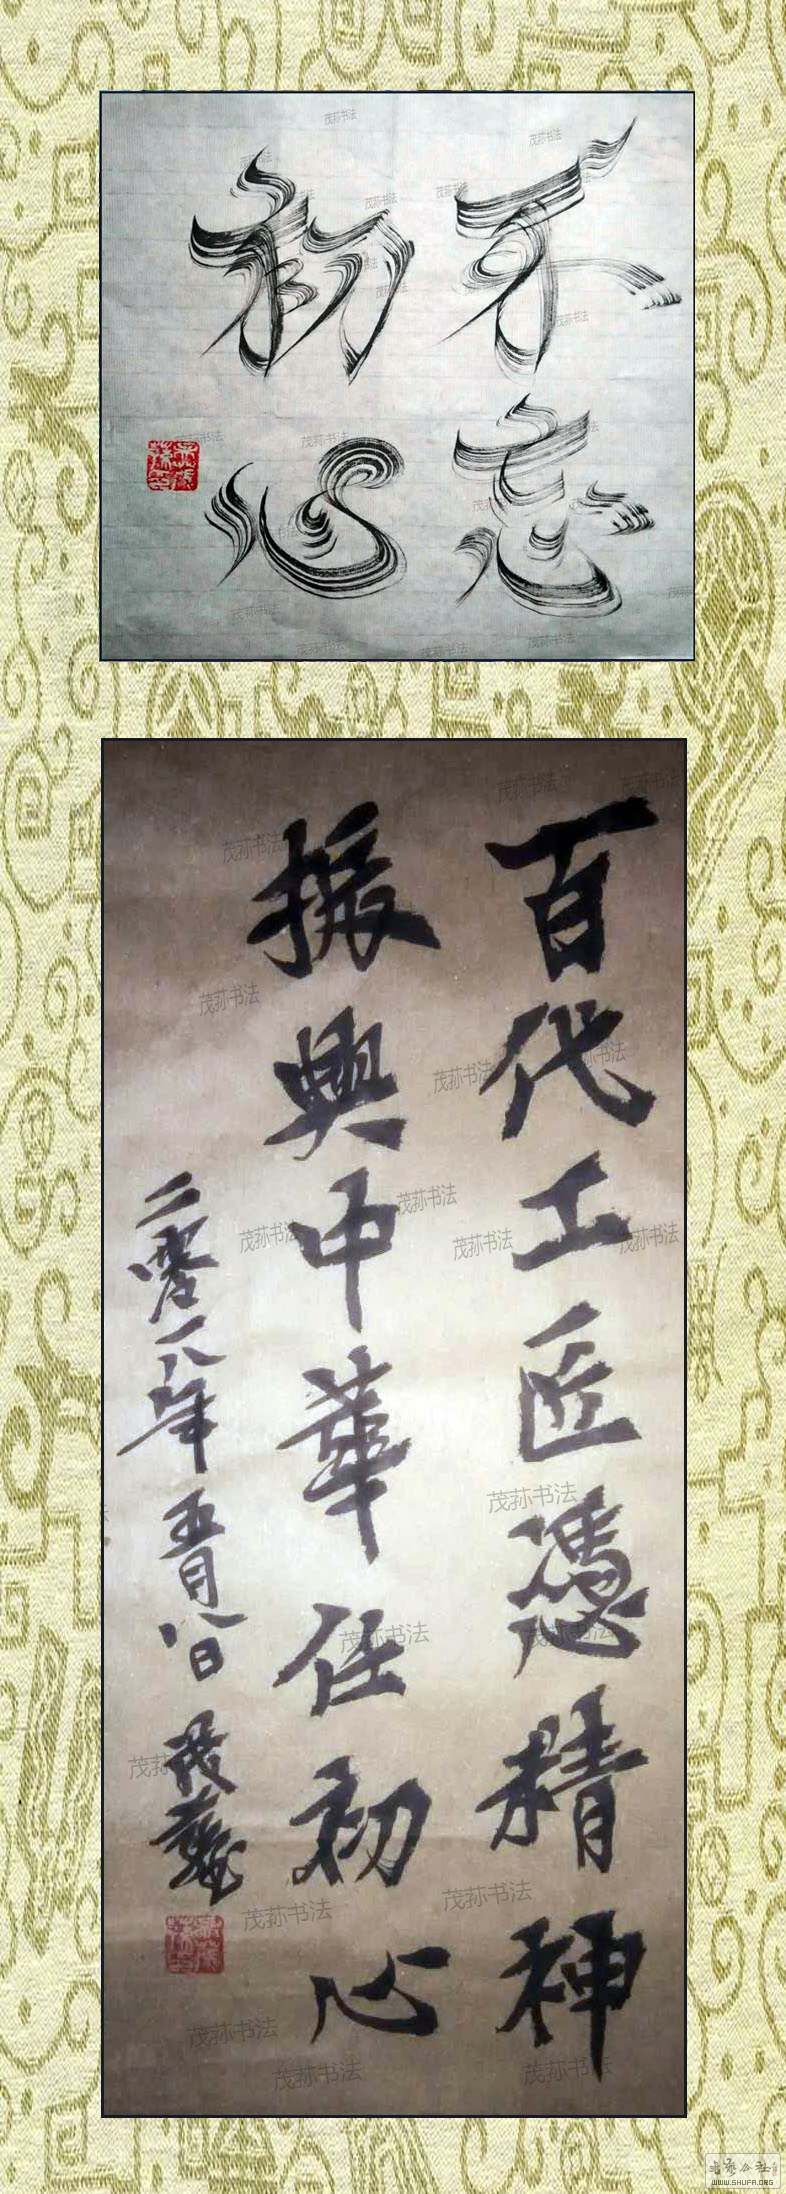 不忘
初心
百代工匠憑精神
振興中華任初心
二零一八年五月八日
茂荪书法
WWW.SHUFA.ORG